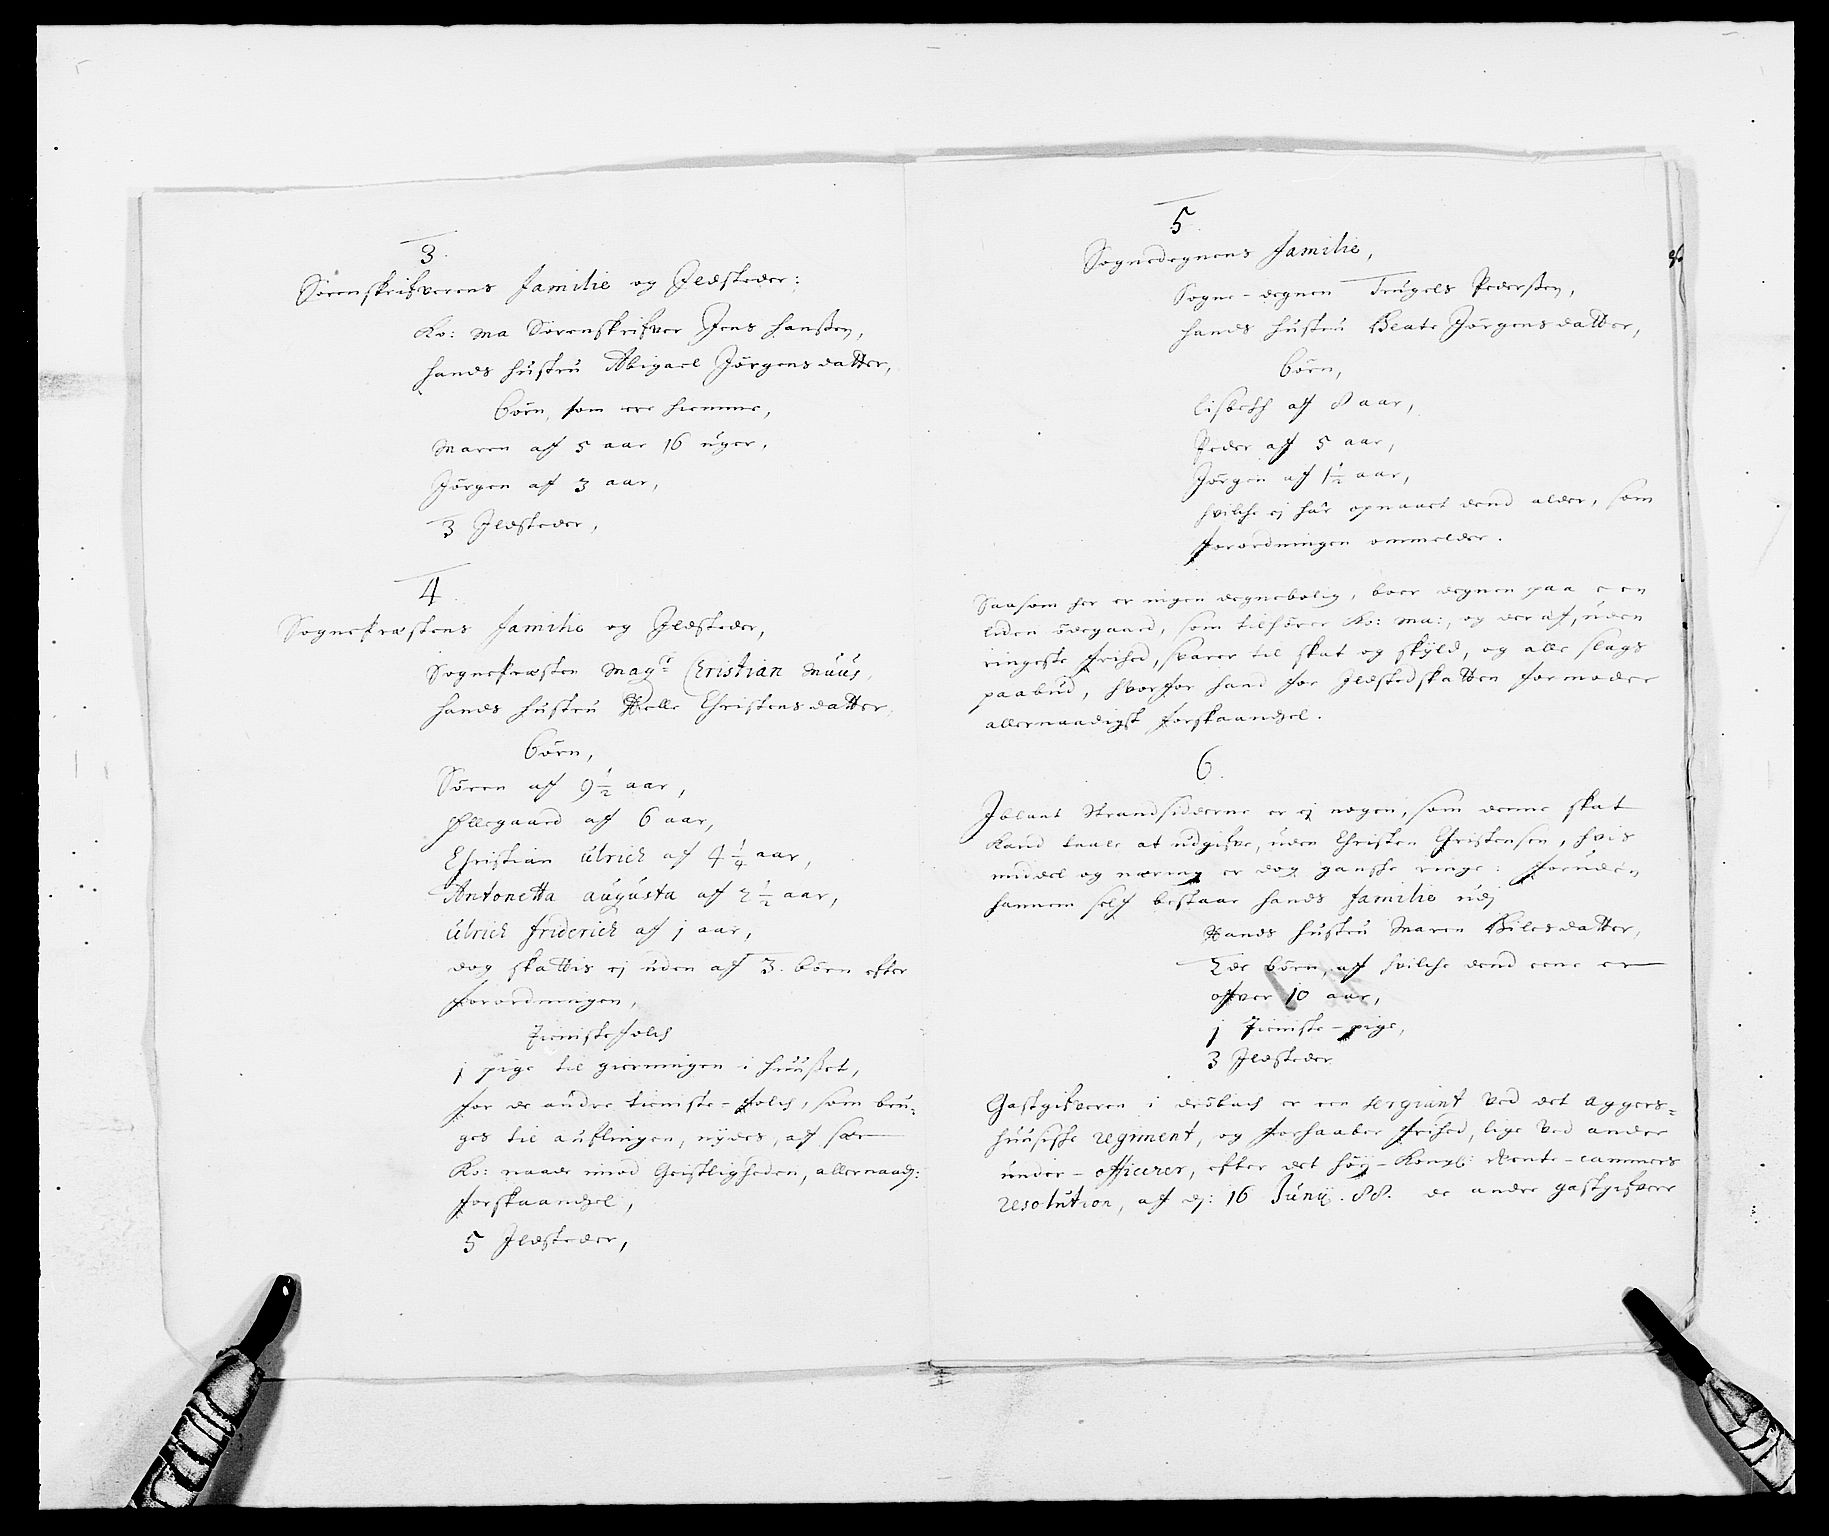 3.
Sorenskrifverens familie og Ildsteder:
Ko: Ma Sorenskrifver Jens Hanßen,
hands hustru Abigael Jørgensdatter,
børn, som ere hiemme,
Maren aff 5 aar 16 uger,
Jørgen aff 3 aar,
3 Ildsteder,
4.
Sogneprestens familie og Ildsteder,
Sognepresten Magr Christian Muus,
hands hustru Pelle Christensdatter,
børn,
Søren aff 9 1/2 aar,
Ellegaard aff 6 aar,
Christian Ulrich aff 4 1/4 aar,
Antonetta Augusta aff 2 1/2 aar,
Ulrich friderich aff 1 aar,
dog skattis ej uden aff 3 børn efter
forordningen,
Tienistefolch
1 pige til gierningen i huußet,
for de andre tieniste-folch, som bru-
ges til auflingen, nydes, aff sær
Ko: naade imod Geistligheden, allernaad:
forskaandsel,
5 Ildsteder,
5.
Sognedegnens familie,
Sogne-degnen Trugels Pederßen,
hands hustru Beate Jørgensdatter,
børn,
Lisbeth aff 8 aar,
Peder aff 5 aar,
Jørgen aff 1 1/2 aar,
hvilche ej har opnaaet dend alder, som
forordningen ommelder.
Saasom her er ingen degnebolig, boer degnen paa een
liden ødegaard, som tilhører Ko: Ma:, og der aff, uden
ringeste frihed, svarer til skat og skyld, og alle slags
paabud, hvorfor hand for Ildstedskatten formoder
allernaadigst forskaandsel.
6.
Iblant Strandsidderne er ej nogen, som denne skat
kand taale at udgifve, uden Christen Christensen, hvis
middel og næring er dog ganske ringe: foruden
hannem self bestaar hands familie udj
Hands hustru Maren Nilesdatter,
2de børn, aff hvilche dend eene er
ofver 10 aar,
1 Tieniste-pige,
3 Ildsteder
Gastgifveren i Drøbach er een sergiant ved det Aggers-
huusiske regiment, og forhaaber frihed, lige ved andre
under-officerer, efter det høy-Kongl: Rente-cammers
resolution, aff dj: 16 Junij. 88. de andre gastgifvere